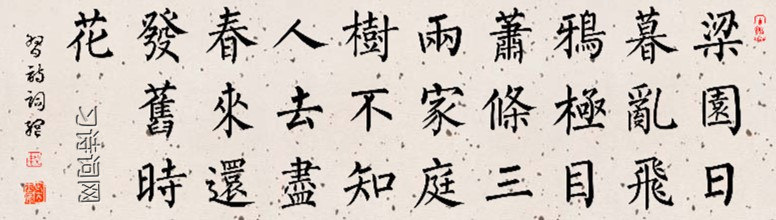 梁園日
暮亂飛
鴉極目
蕭條三
兩家庭
樹不知
人去盡
春來還
發舊時
花
习诗词网
習詩詞網